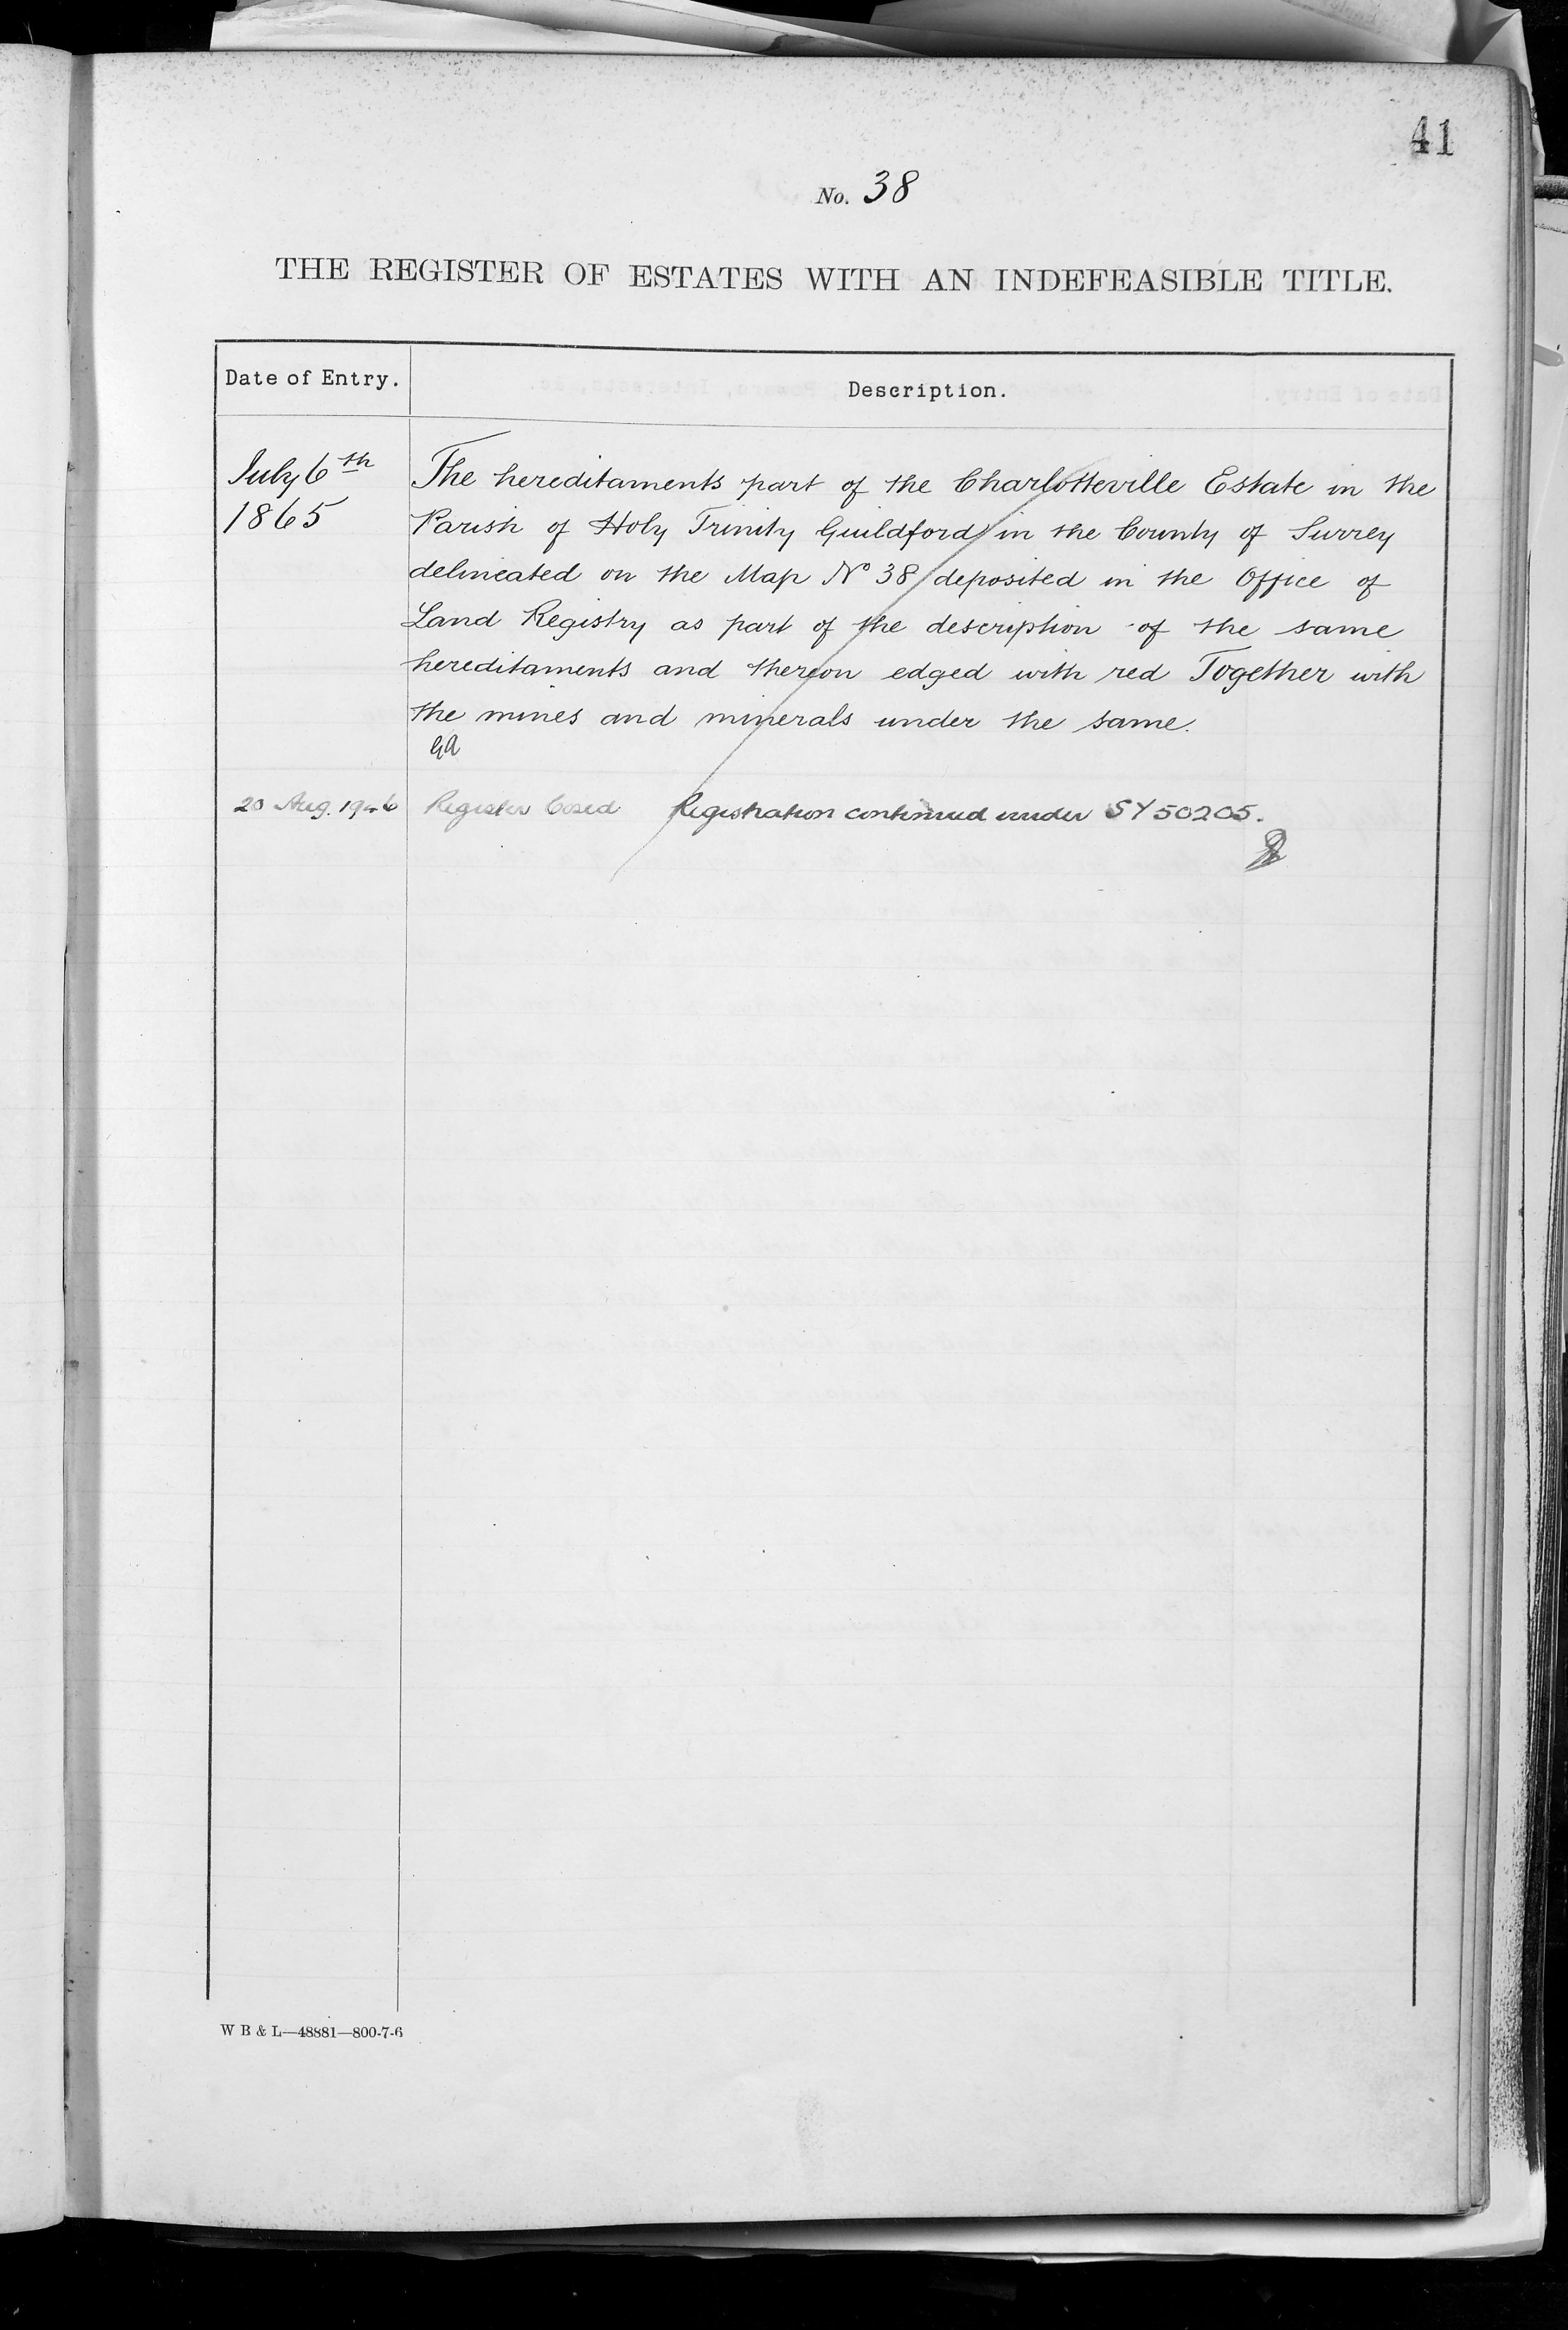 41
No. 38
THE REGISTER OF ESTATES WITH AN INDEFEASIBLE TITLE.
Date of Entry.
Description.
July 6th
1865
The hereditaments part of the Charlotteville Estate in the
Parish of Holy Trinity Guildford in the County of Surrey
delineated on the Map No 38 deposited in the Office of
Land Registry as part of the description of the same
hereditaments and thereon edged with red Together with
the mines and minerals under the same.
GA
20 Aug. 1946 Register Closed Registration continued under SY50205.
W B & L—48881—800-7-6